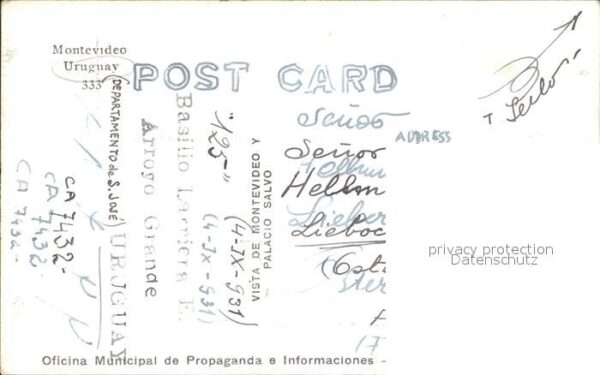 Montevideo
Uruguay
333
POST CARD
ADDRESS
Señor
Señor
Hellm
Lieboc
(Ost
ster
Sellos
Basilio Larriera E.
Arroyo Grande
(DEPARTAMENTO de S. JOSÉ)
URUGUAY
CA 7432-
CA 7432-
CA 7432-
"125"
(4-IX-931)
(4-IX-931)
VISTA DE MONTEVIDEO Y
PALACIO SALVO
privacy protection
Datenschutz
Oficina Municipal de Propaganda e Informaciones -